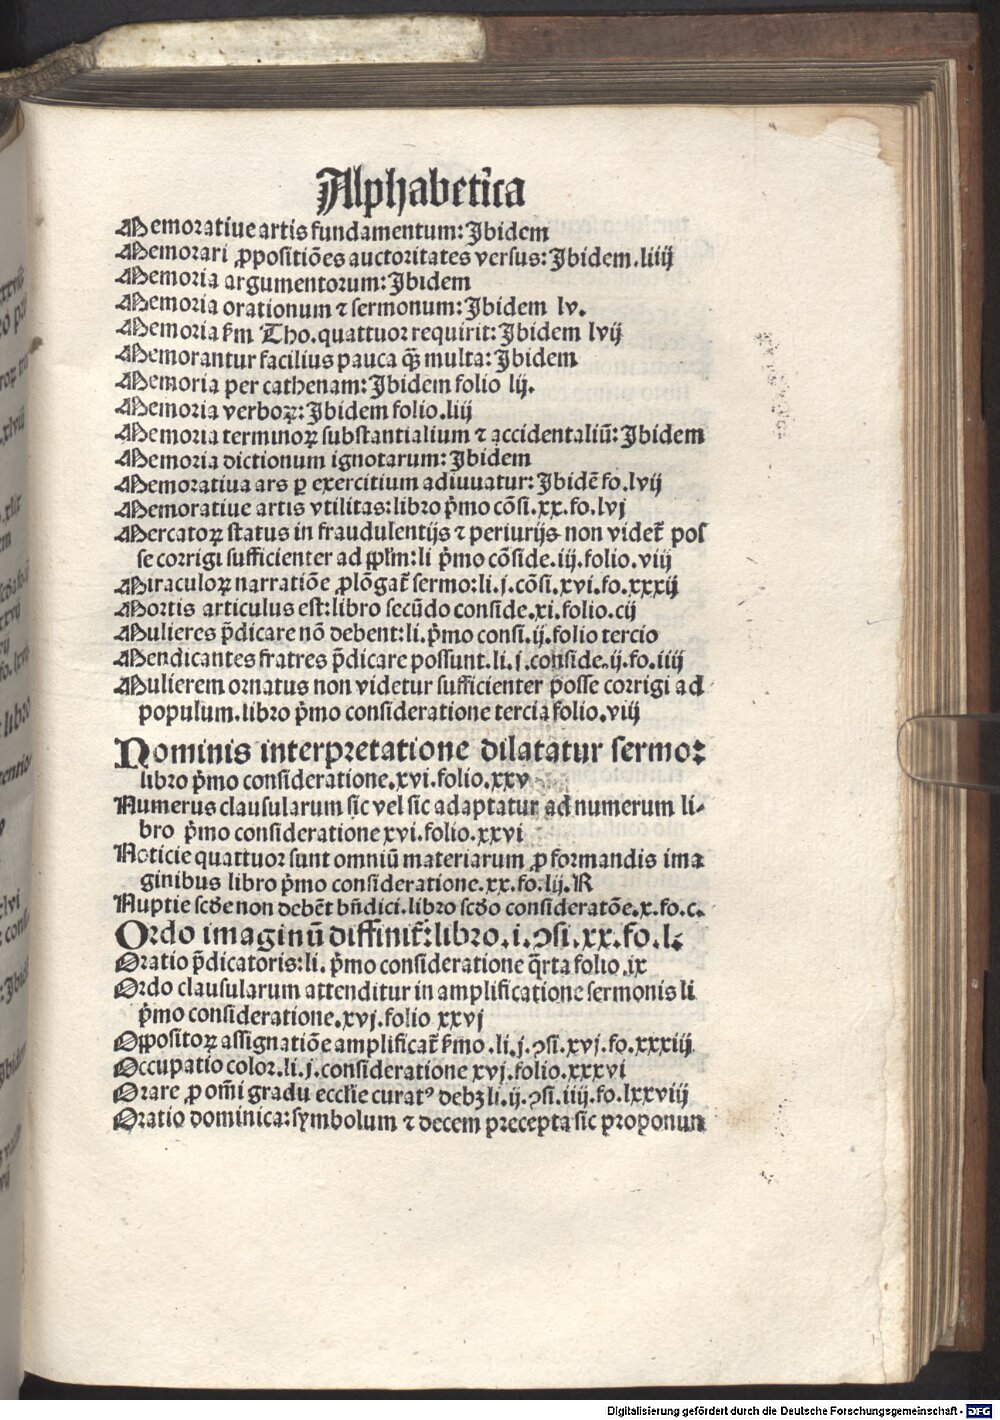 Alphabetica
Memoratiue artis fundamentum: Ibidem
Memorari ꝓpositiões auctoritates versus: Ibidem .liiij
Memoria argumentorum: Ibidem
Memoria orationum ⁊ sermonum: Ibidem lv.
Memoria ẜm Tho. quattuor requirit: Ibidem lvij
Memorantur facilius pauca q̃ꝫ multa: Ibidem
Memoria per cathenam: Ibidem folio lij.
Memoria verboꝝ: Ibidem folio .liij
Memoria terminoꝝ substantialium ⁊ accidentaliũ: Ibidem
Memoria dictionum ignotarum: Ibidem
Memoratiua ars ꝑ exercitium adiuuatur: Ibidẽ fo. lvij
Memoratiue artis vtilitas: libro p̃mo cõsi. xx. fo. lvj
Mercatoꝝ status in fraudulentijs ⁊ periurijs non videt̃ pos
se corrigi sufficienter ad ppl̃m: li p̃mo cõside. iij. folio. viij
Miraculoꝝ narratiõe ꝓlõgat̃ sermo: li. j. cõsi. xvi. fo. xxxij
Mortis articulus est: libro secũdo conside. xi. folio. cij
Mulieres p̃dicare nõ debent: li. p̃mo consi. ij. folio tercio
Mendicantes fratres p̃dicare possunt. li. j. conside. ij. fo. iiij
Mulierem ornatus non videtur sufficienter posse corrigi ad
populum. libro p̃mo consideratione tercia folio. viij
Nominis interpretatione dilatatur sermo:
libro p̃mo consideratione. xvi. folio. xxv
Numerus clausularum sic vel sic adaptatur ad numerum li-
bro p̃mo consideratione xvi. folio. xxvi
Noticie quattuor sunt omniũ materiarum ꝓ formandis ima
ginibus libro p̃mo consideratione. xx. fo. lij. R
Nuptie scđe non debẽt bñdici. libro scđo consideratõe. x. fo. c.
Ordo imaginũ diffinit̃: libro. i. ꝯsi. xx. fo. l.
Oratio p̃dicatoris: li. p̃mo consideratione q̃rta folio. ix
Ordo clausularum attenditur in amplificatione sermonis li
p̃mo consideratione. xvj. folio xxvj
Oppositoꝝ assignatiõe amplificat̃ ẜmo. li. j. ꝯsi. xvj. fo. xxxiij
Occupatio color. li. j. consideratione xvj. folio. xxxvi
Orare ꝓ om̃i gradu eccl̃ie curatꝰ debꝫ li. ij. ꝯsi. iiij. fo. lxxviij
Oratio dominica: symbolum ⁊ decem precepta sic proponun
Digitalisierung gefördert durch die Deutsche Forschungsgemeinschaft - DFG